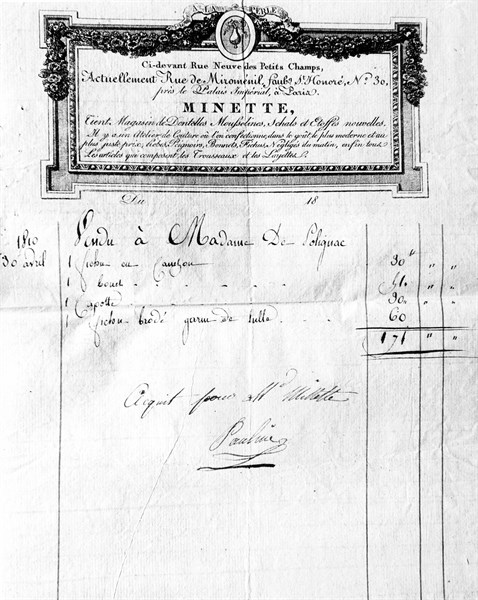 A LA PERLE
Ci-devant Rue Neuve des Petits Champs,
Actuellement Rue de Miroménil, faubg. St. Honoré, No. 30,
près le Palais Impérial, à Paris.
MINETTE,
Tient Magasin de Dentelles Mousselines, Schals et Etoffes nouvelles.
Il y a un Atelier de Couture où l'on confectionne, dans le goût le plus moderne et au
plus juste prix, Robes, Peignoirs, Bonnets, Fichus, Négligés du matin, enfin tous
les articles que composent les Trousseaux et les Layettes &c.
Du 18
1810 Vendu à Madame De Polignac
30 avril 1 fichu en Canezou 30 " " "
1 bonet 51 " "
1 Capotte 30 " "
1 fichu brodé garni de tulle 60
171 " "
Acquit pour Md Minette
Pauline